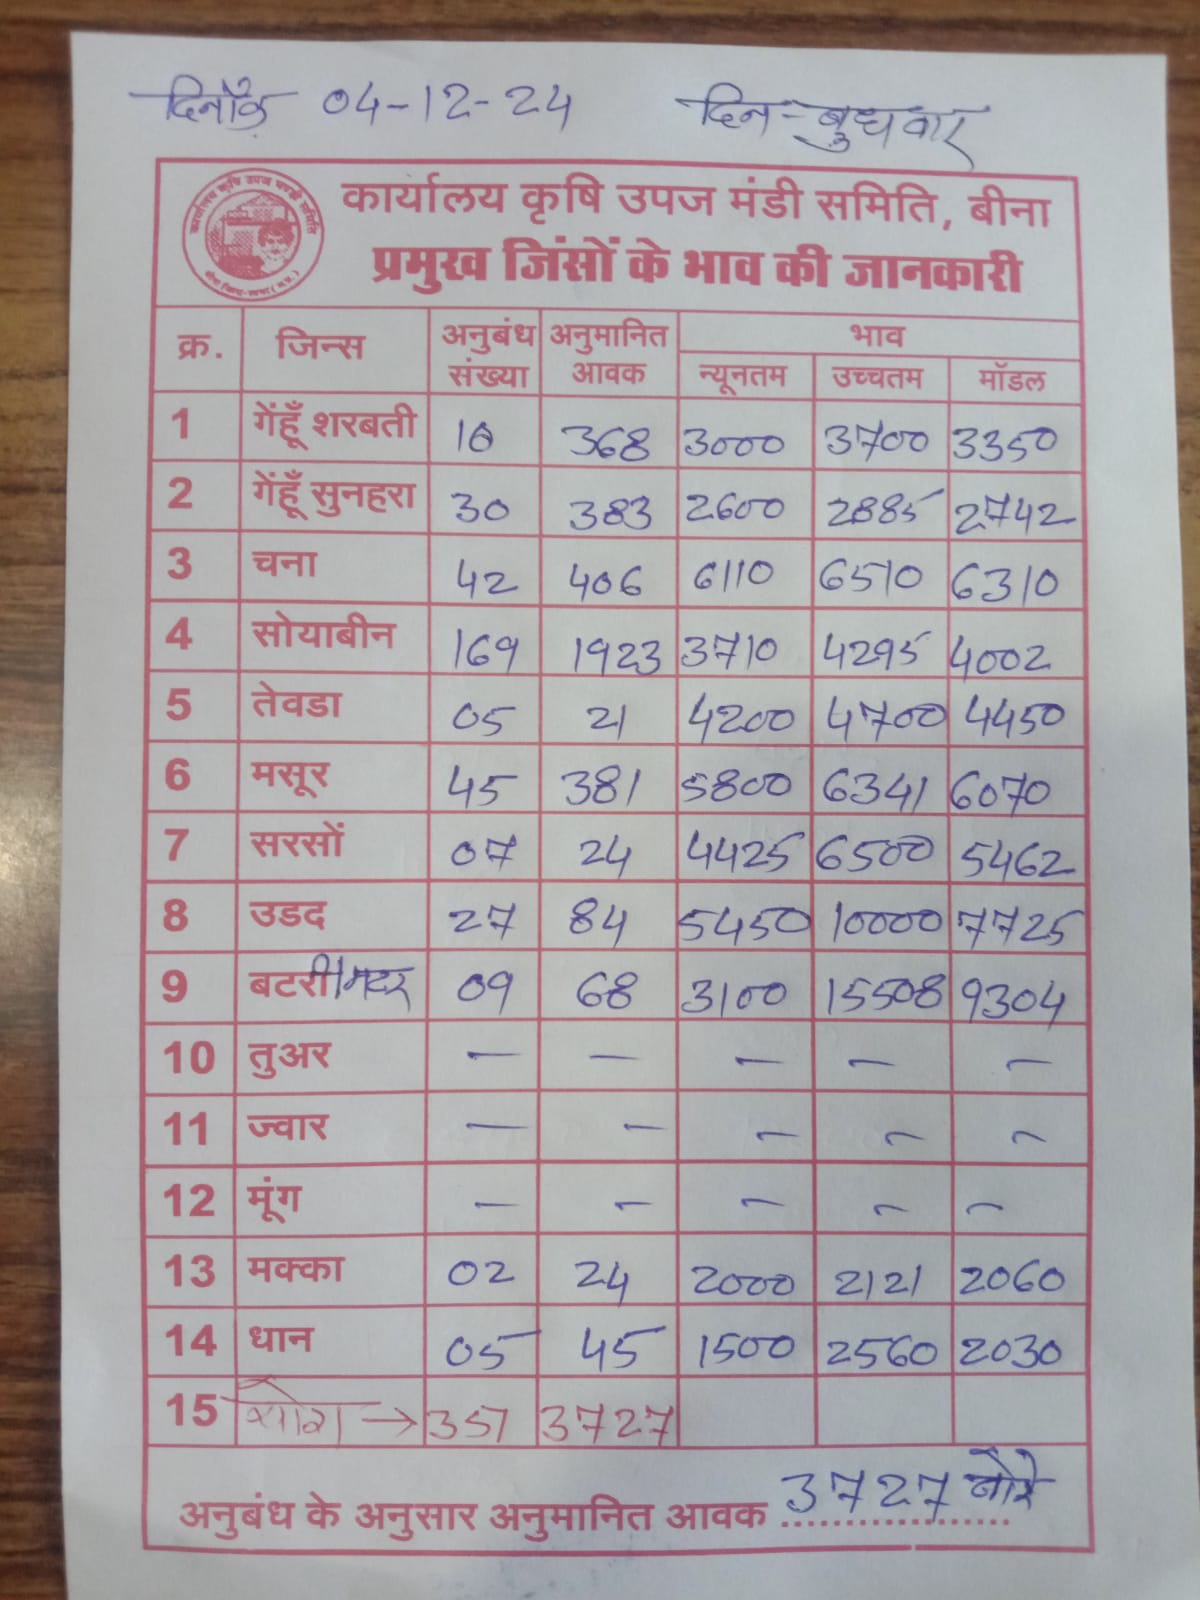 दिनाँक 04-12-24 दिन-बुधवार
कार्यालय कृषि उपज मंडी समिति, बीना
प्रमुख जिंसों के भाव की जानकारी
क्र. जिन्स अनुबंध संख्या अनुमानित आवक भाव
न्यूनतम उच्चतम मॉडल
1 गेंहूँ शरबती 10 368 3000 3700 3350
2 गेंहूँ सुनहरा 30 383 2600 2885 2742
3 चना 42 406 6110 6510 6310
4 सोयाबीन 169 1923 3710 4295 4002
5 तेवडा 05 21 4200 4700 4450
6 मसूर 45 381 5800 6341 6070
7 सरसों 07 24 4425 6500 5462
8 उडद 27 84 5450 10000 7725
9 बटरी/मटर 09 68 3100 15508 9304
10 तुअर — — — — —
11 ज्वार — — — — —
12 मूंग — — — — —
13 मक्का 02 24 2000 2121 2060
14 धान 05 45 1500 2560 2030
15 योग → 351 3727
अनुबंध के अनुसार अनुमानित आवक 3727 बोरे